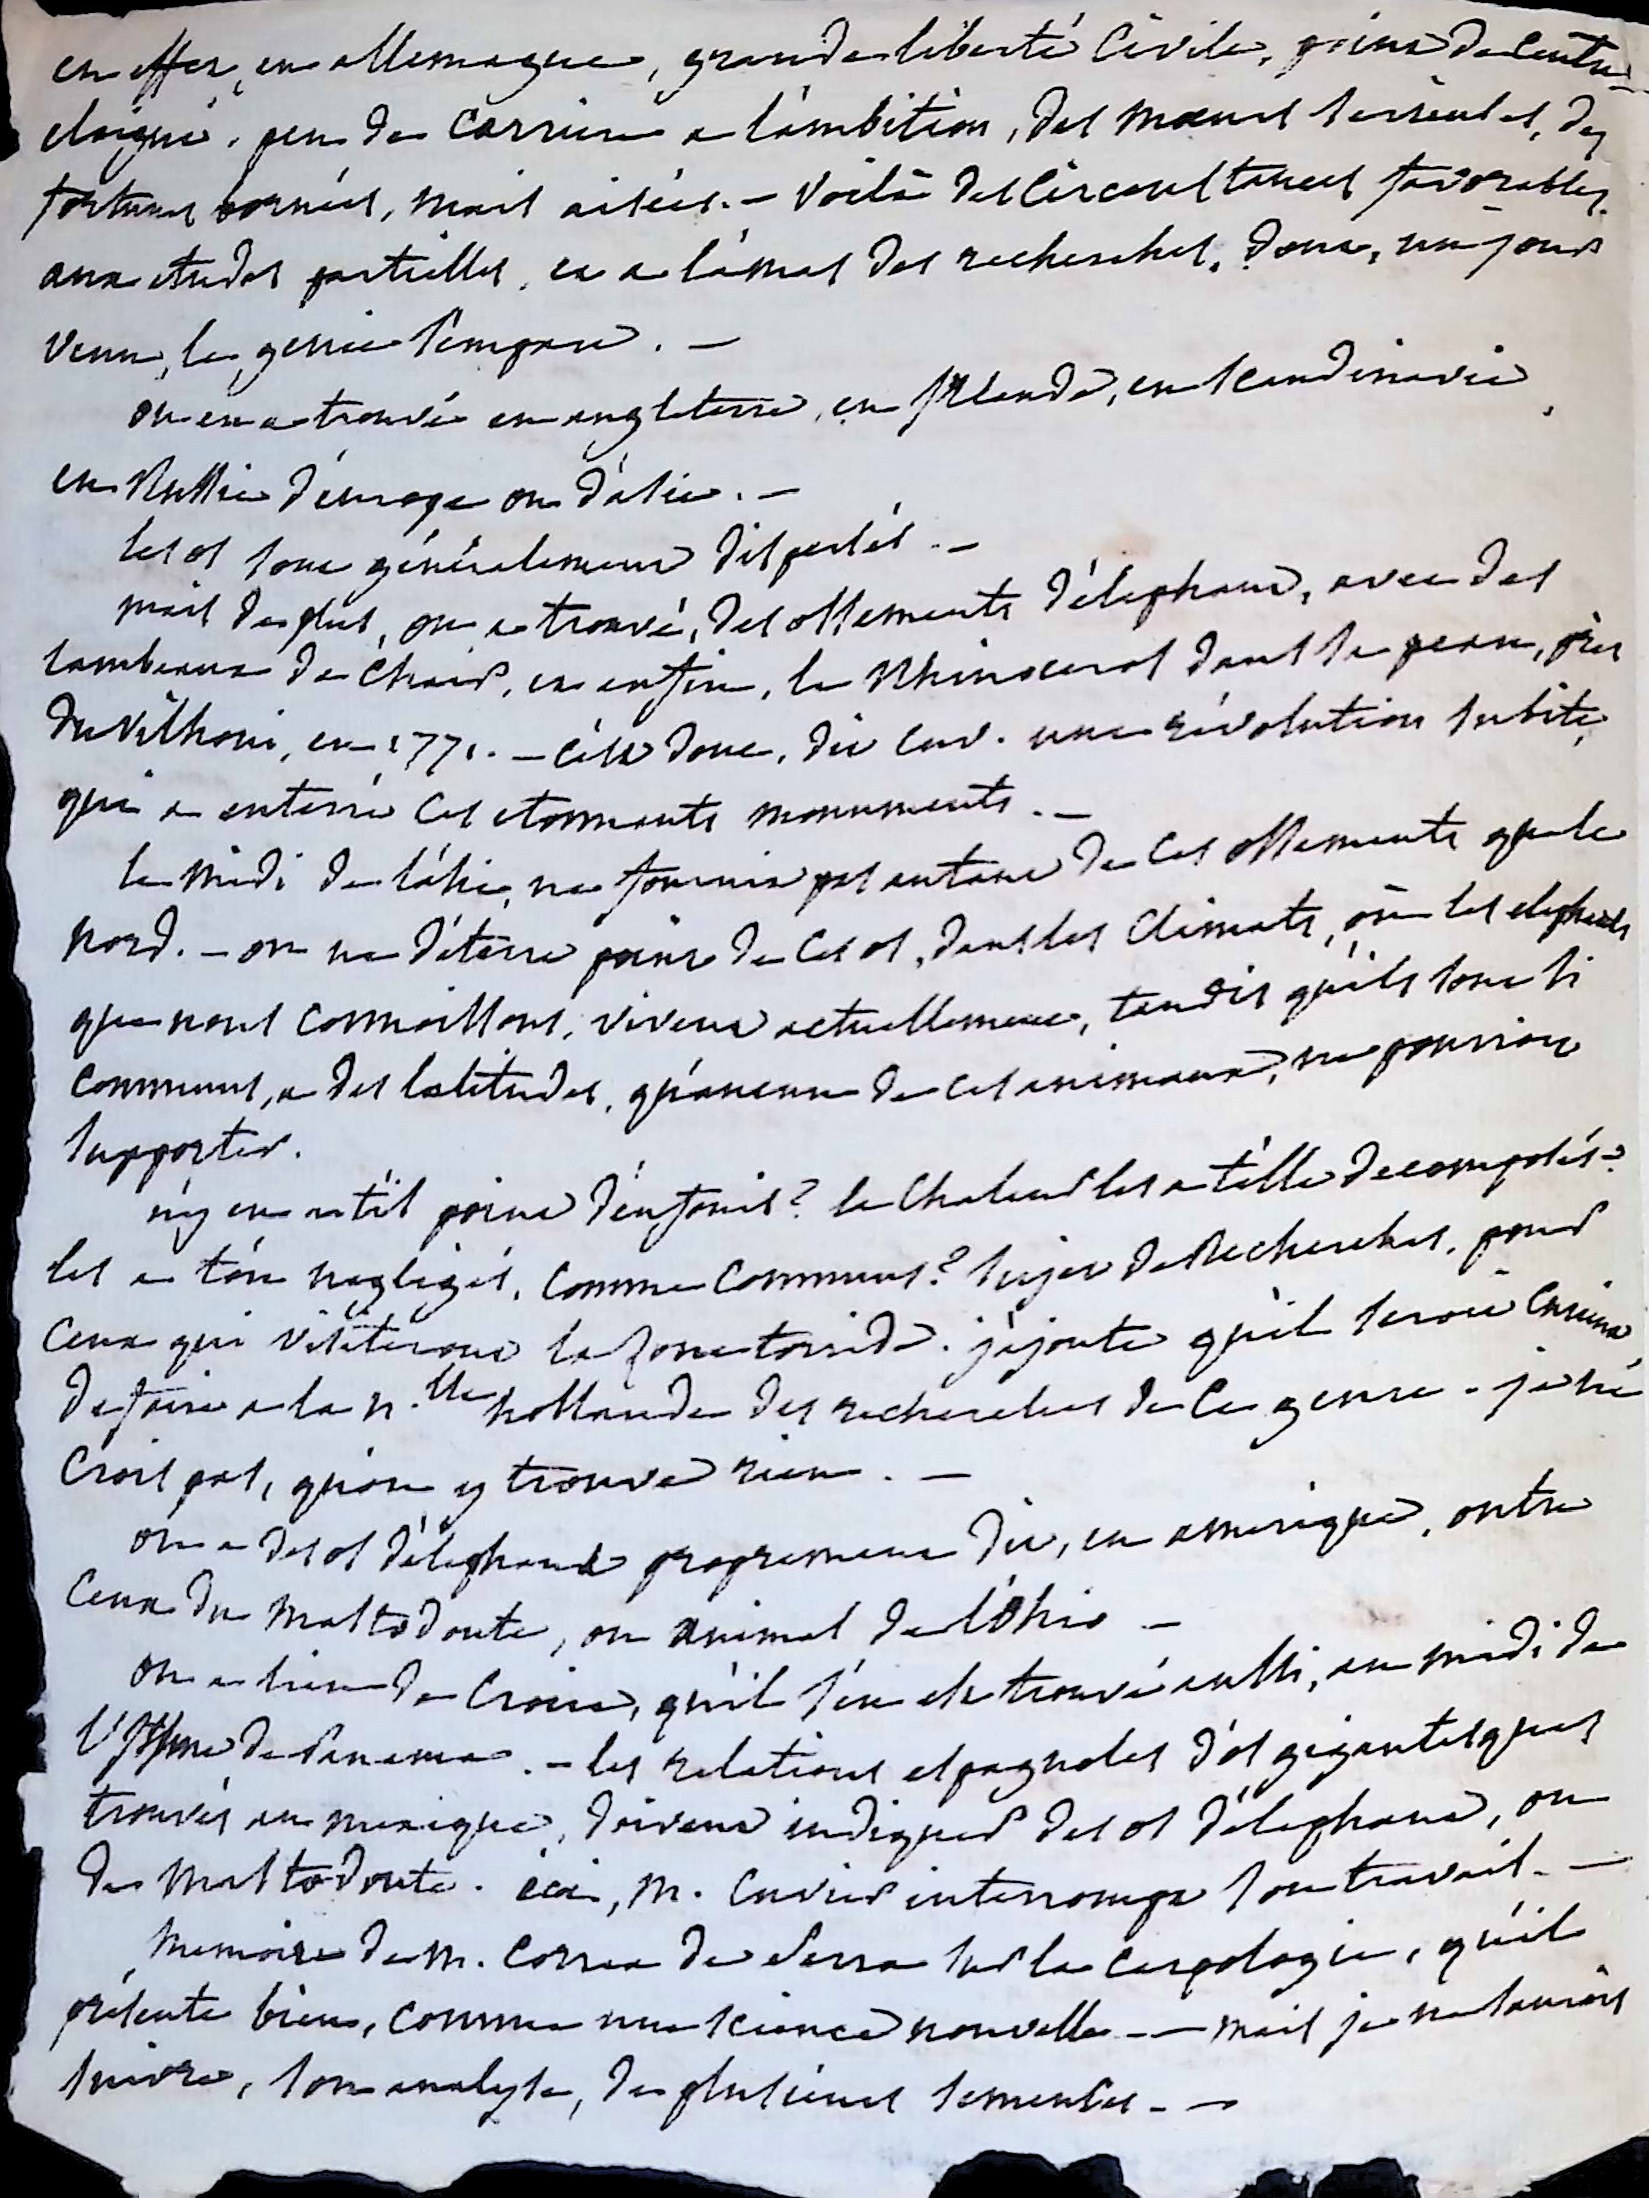 en effet, en allemagne, grande liberté civile, point de centre
eloigné, peu de carriere a l'ambition, des mœurs serieuses, des
fortunes bornées, mais aisées. - voila des circonstances favorables
aux etudes partielles, et a l'amas des recherches, dont, un jour
venu, le genie s'empare. -
on en a trouvé en angleterre, en Irlande, en scandinavie,
en Russie d'europe ou d'asie. -
les os sont généralement dispersés. -
mais de plus, on a trouvé, des ossements d'élephant, avec des
lambeaux de chair, et enfin, le Rhinoceros dans sa peau, près
du vilhoui, en 1771. - c'est donc, dit cuv. une révolution subite,
qui a enterré ces etonnants monuments. -
le midi de l'asie, ne fournit pas autant de ces ossements que le
nord. - on ne déterre point de ces os, dans les climats, où les elephants
que nous connoissons, vivent actuellement, tandis qu'ils sont si
communs, a des latitudes, qu'aucun de ces animaux, ne pourroit
supporter.
n'y en a t'il point d'enfouis? la chaleur les a t'elle decomposés?
les a t'on negligés, comme communs? sujet de Recherches, pour
ceux qui visiteront la zone torride. j'ajoute qu'il seroit curieux
de faire a la n.lle hollande des recherches de ce genre. je ne
crois pas, qu'on y trouve rien. -
on a des os d'élephant proprement dit, en amerique, outre
ceux du mastodonte, ou animal de l'ohio -
on a lieu de croire, qu'il s'en est trouvé aussi, au midi de
l'Isthme de Panama. - les relations espagnoles d'os gigantesques
trouvés au mexique, doivent indiquer des os d'élephant, ou
de mastodonte. ici, m. cuvier interrompt son travail. -
memoire de m. correa de serra sur la carpologie, qu'il
présente bien, comme une science nouvelle - - mais je ne saurois
suivre, son analyse, de plusieurs semences - -